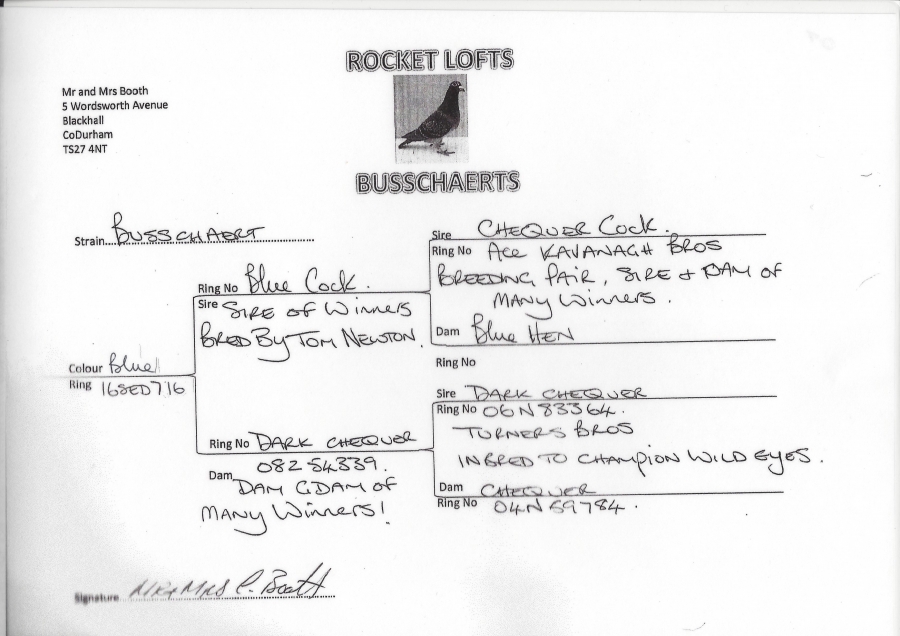 ROCKET LOFTS
Mr and Mrs Booth
5 Wordsworth Avenue
Blackhall
CoDurham
TS27 4NT
BUSSCHAERTS
Strain....BUSSCHAERT
Sire CHEQUER COCK.
Ring No ACE KAVANAGH BROS
BREEDING PAIR, SIRE & DAM OF
MANY WINNERS.
Dam Blue HEN
Ring No
Ring No Blue Cock.
Sire SIRE OF WINNERS
BRED BY TOM NEWTON.
Colour Blue
Ring 16SED716
Sire DARK CHEQUER
Ring No 06N83364.
TURNERS BROS
INBRED TO CHAMPION WILD EYES.
Dam CHEQUER
Ring No 04N59784.
Ring No DARK CHEQUER
08Z54339.
Dam DAM GDAM OF
MANY WINNERS!
Signature MR & MRS C. Booth